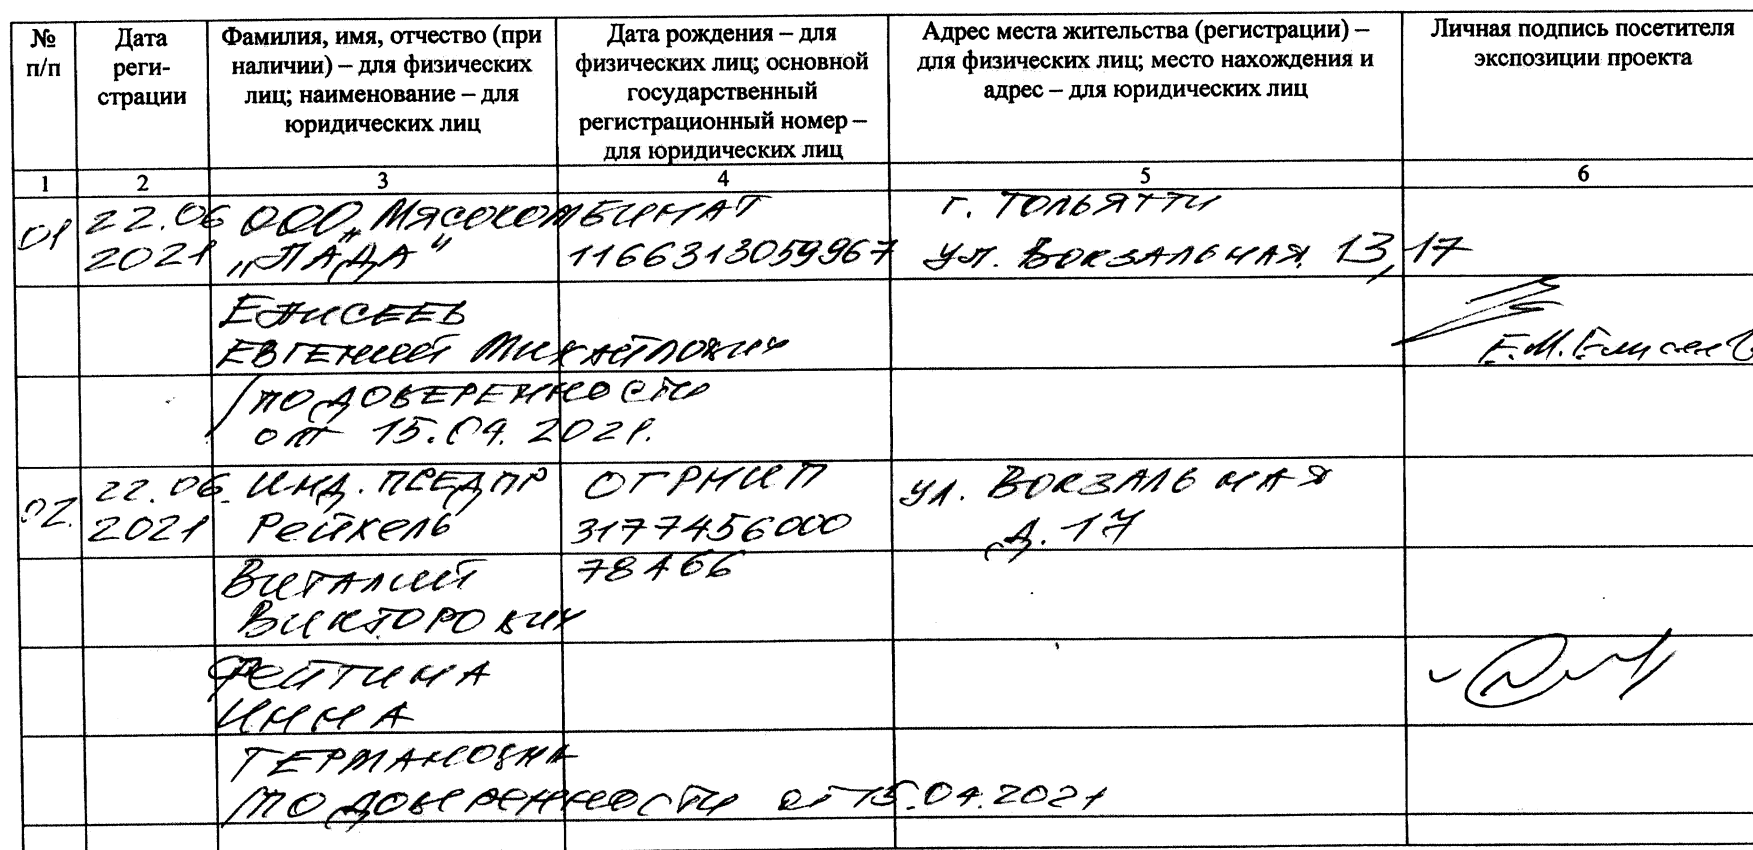 № п/п
Дата реги- страции
Фамилия, имя, отчество (при наличии) – для физических лиц; наименование – для юридических лиц
Дата рождения – для физических лиц; основной государственный регистрационный номер – для юридических лиц
Адрес места жительства (регистрации) – для физических лиц; место нахождения и адрес – для юридических лиц
Личная подпись посетителя экспозиции проекта
1 2 3 4 5 6
01 22.06 ООО „Мясокомбинат г. Тольятти
2021 „ЛАДА“ 1166313059967 ул. Вокзальная 13, 17
Елисеев
Евгений Михайлович Е.М. Елисеев
/по доверенности
от 15.04.2021.
02. 22.06. Инд. предпр ОГРНИП ул. Вокзальная
2021 Рейхель 3177456000 д. 17
Виталий 78466
Викторович
Фейгина
Инна
Германовна
/по доверенности от 15.04.2021